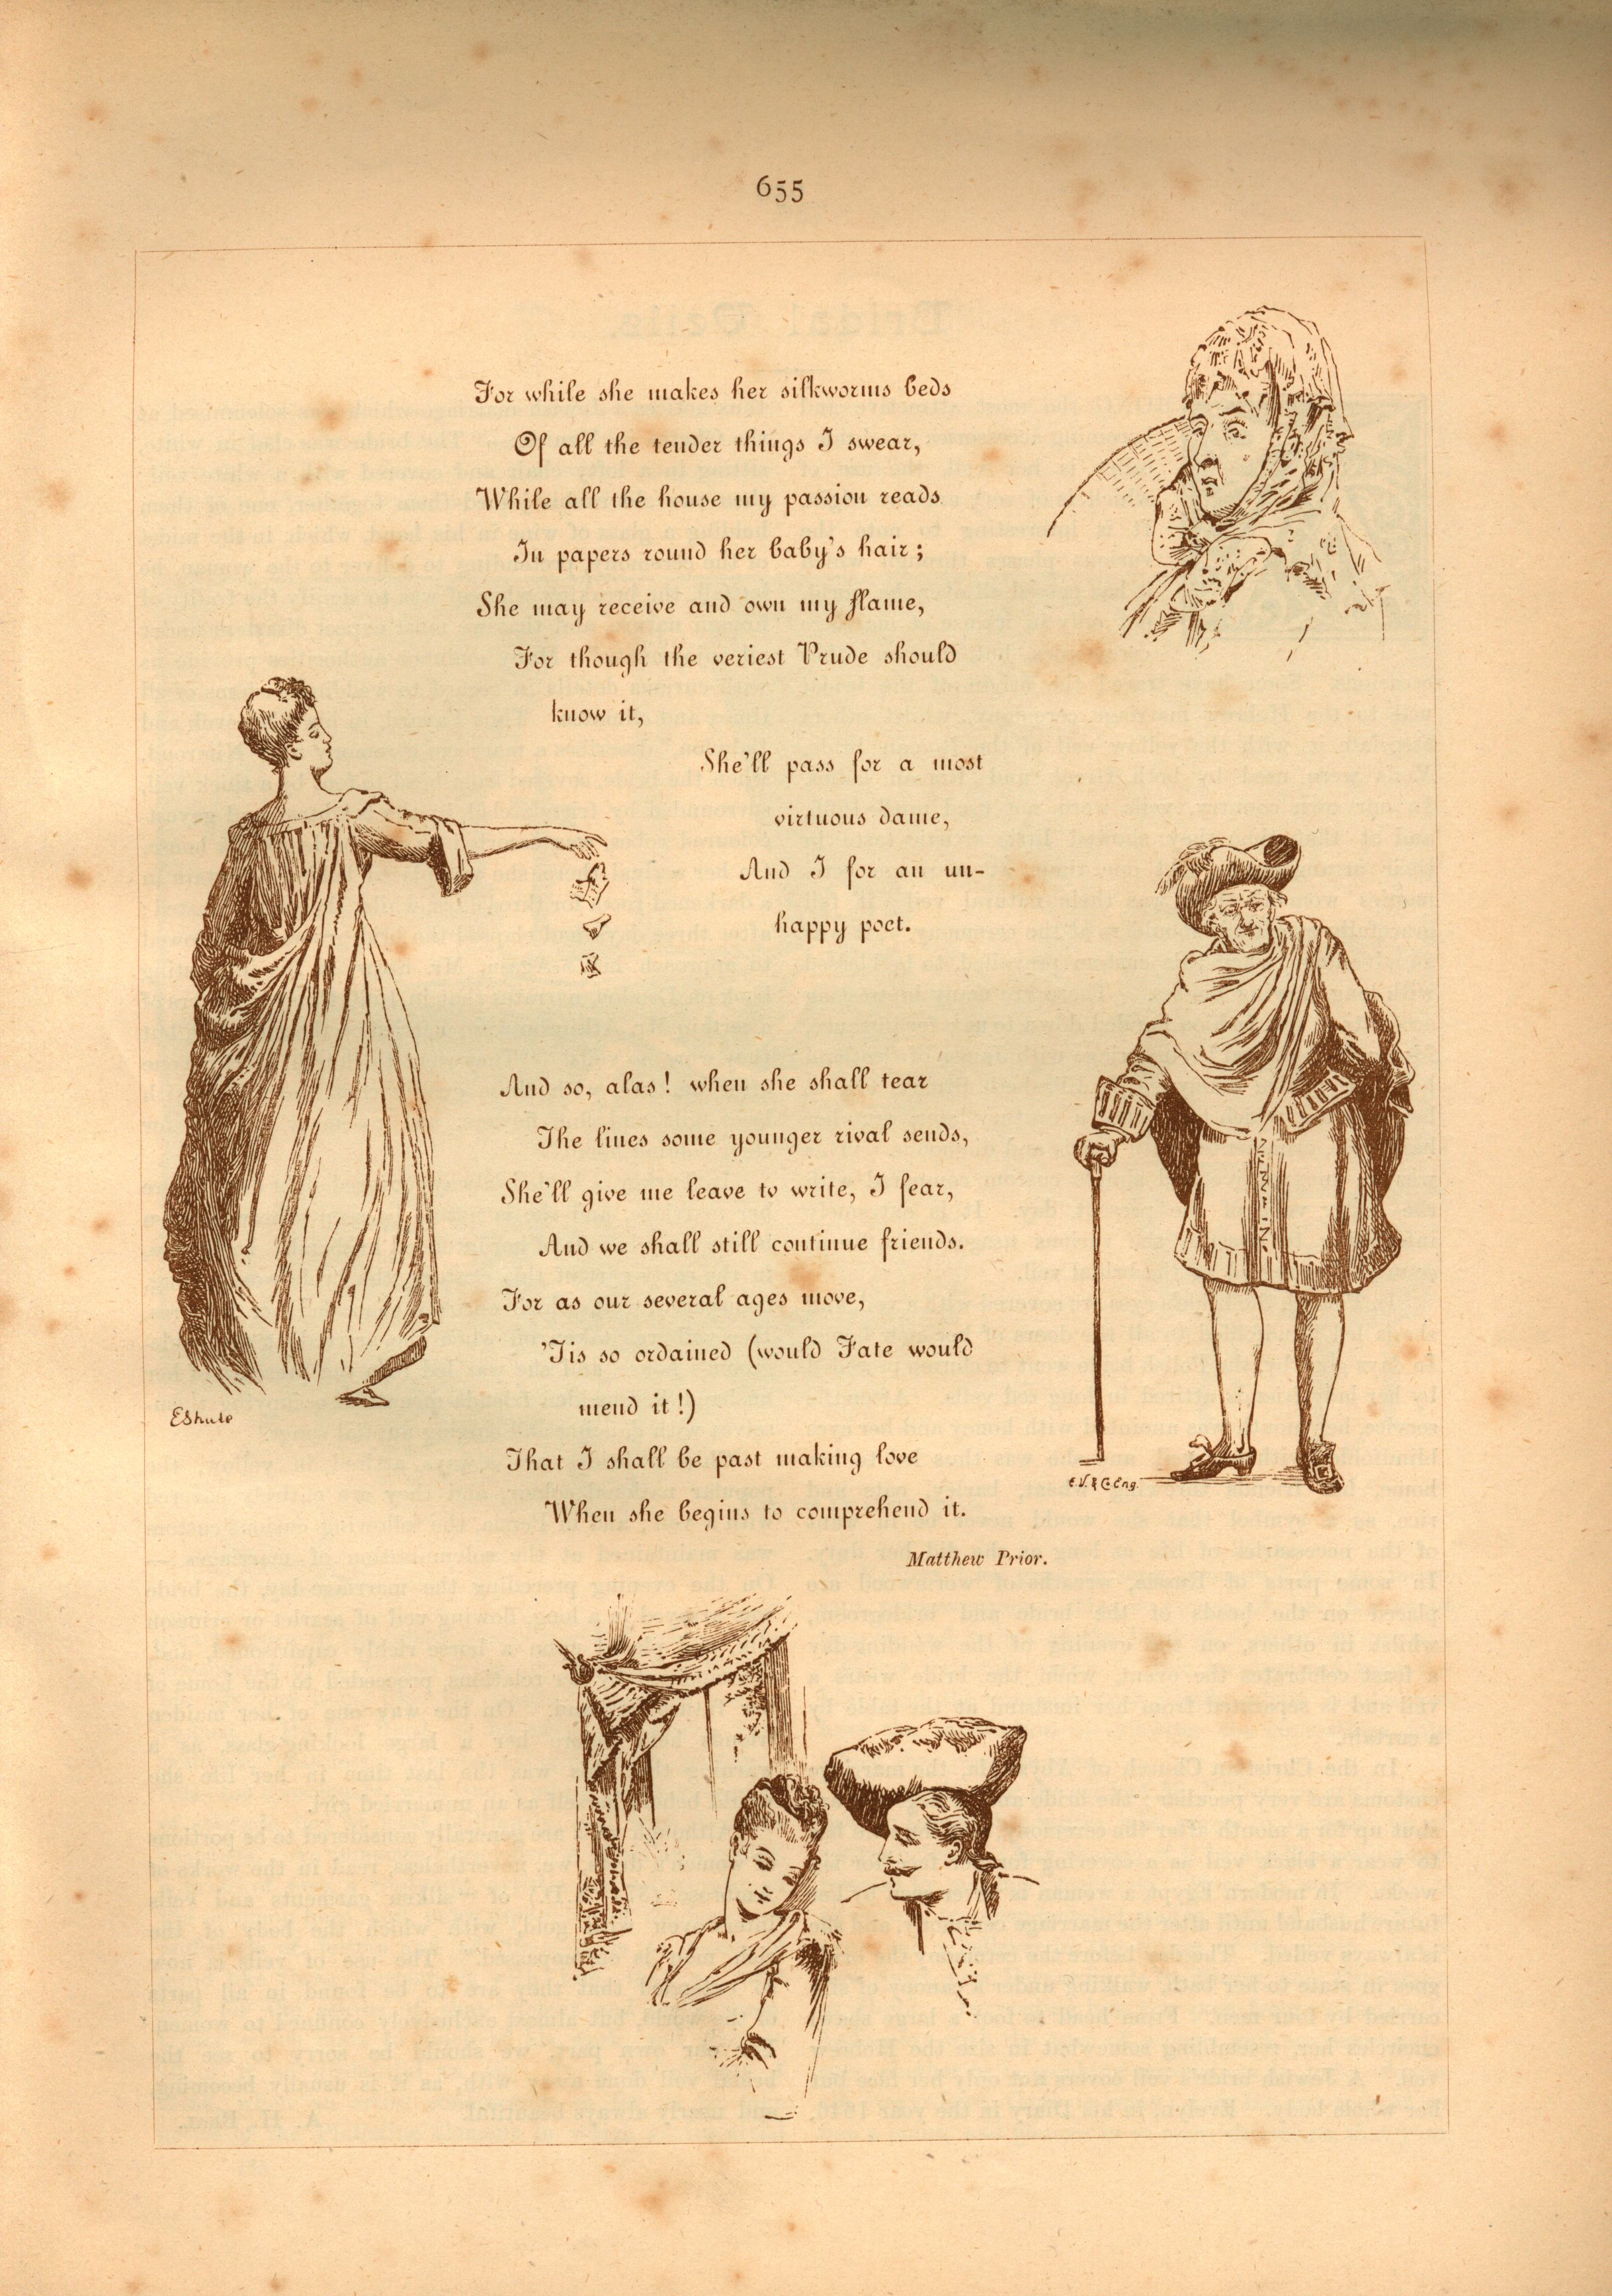 655
For while she makes her silkworms beds
Of all the tender things I swear,
While all the house my passion reads
In papers round her baby's hair;
She may receive and own my flame,
For though the veriest Prude should
know it,
She'll pass for a most
virtuous dame,
And I for an un-
happy poet.
And so, alas! when she shall tear
The lines some younger rival sends,
She'll give me leave to write, I fear,
And we shall still continue friends.
For as our several ages move,
'Tis so ordained (would Fate would
mend it!)
That I shall be past making love
When she begins to comprehend it.
Matthew Prior.
EShute
E.V. & Co Eng.